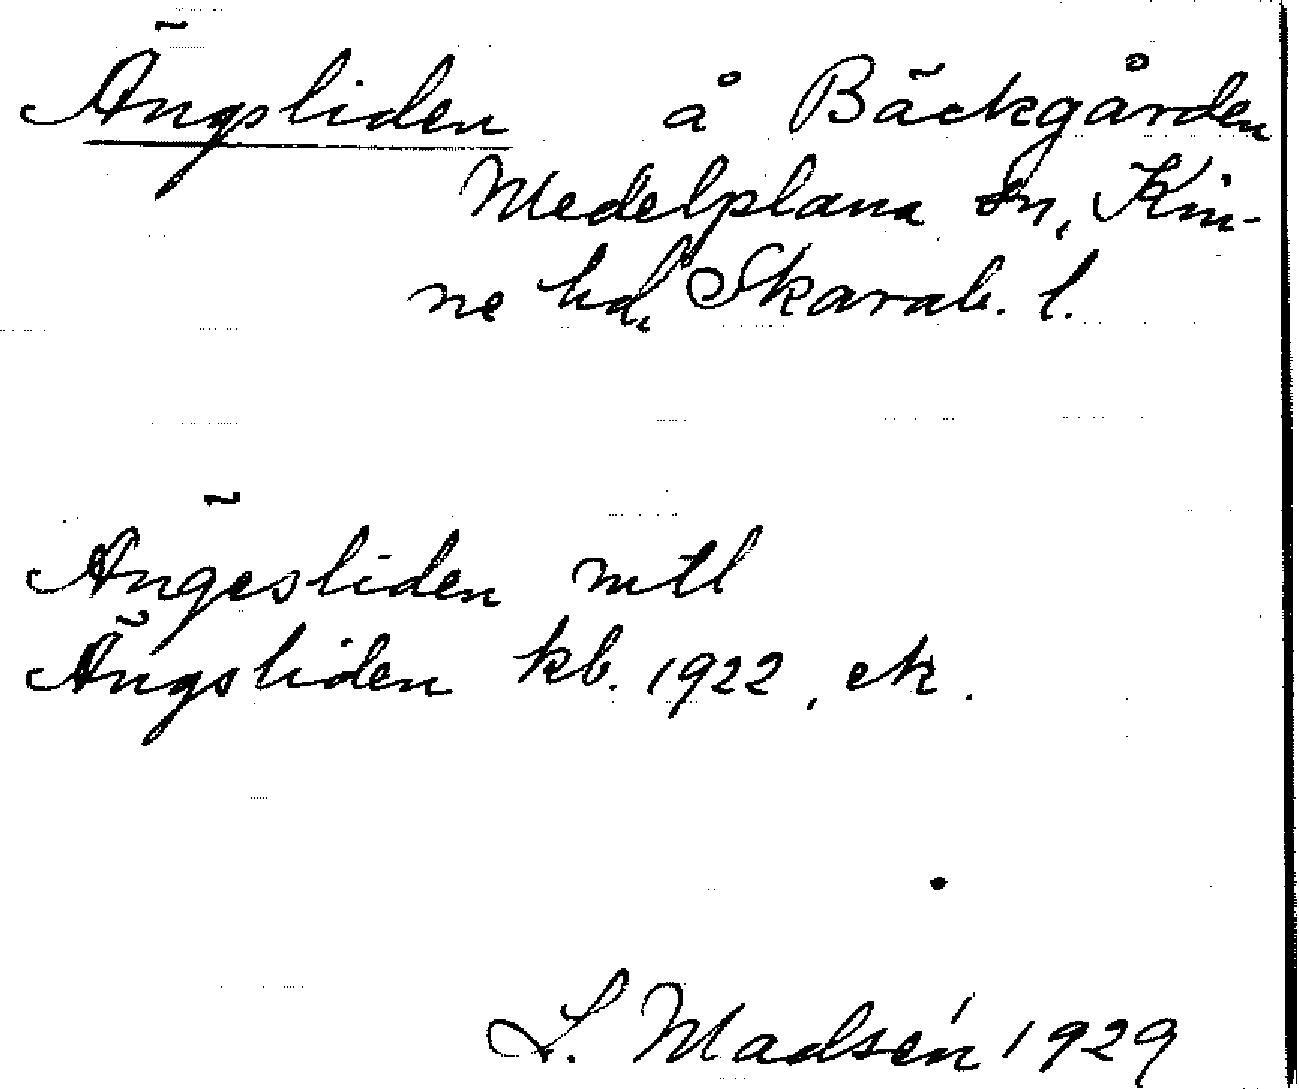 Ängsliden å Bäckgården
Medelplana sn, Kin-
ne hd, Skarab. l.
Ängesliden mtl
Ängsliden kb. 1922, ek.
L. Madsén 1929